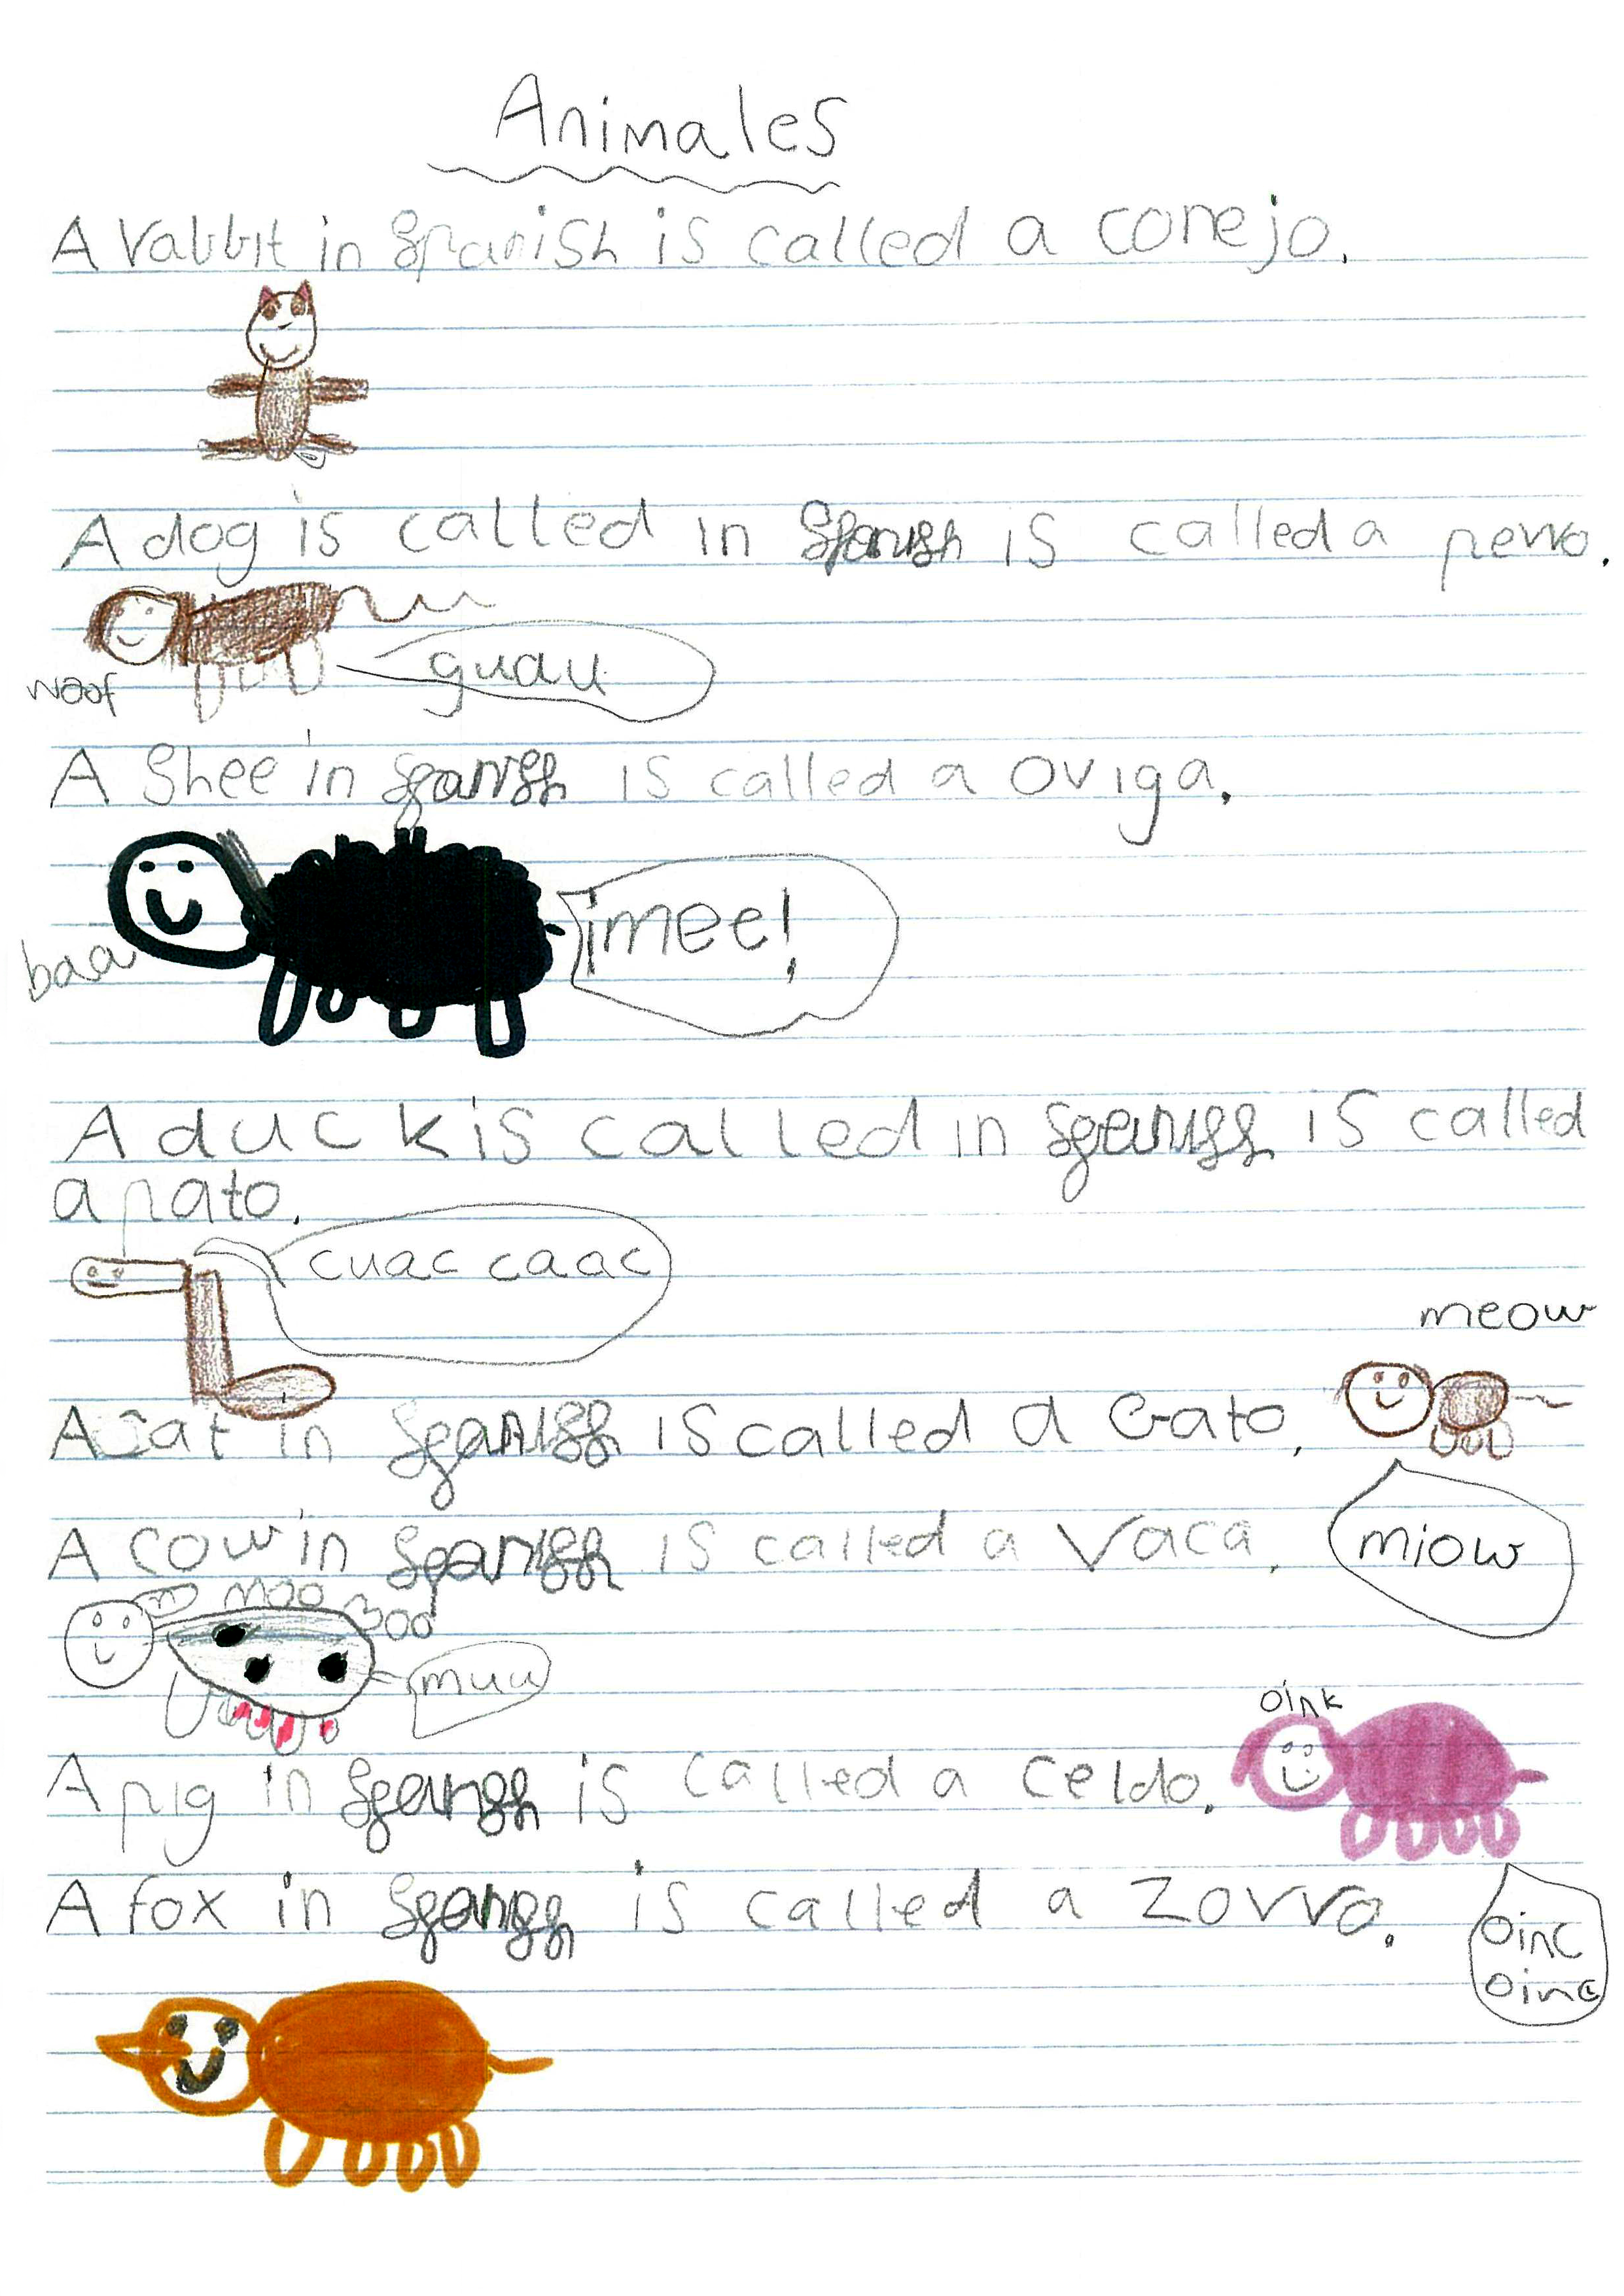 Animales
A rabbit in Spanish is called a conejo.
A dog is called in Spanish is called a perro.
guau
woof
A Shee in Spanish is called a oviga.
¡mee!
baa
A duck is called in Spanish is called
a pato.
cuac caac
meow
A cat in Spanish is called a Gato.
A cow in Spanish is called a Vaca.
miow
moo
moo
muu
oink
A pig in Spanish is called a Celdo.
A fox in Spanish is called a Zorro.
oinc
oinc